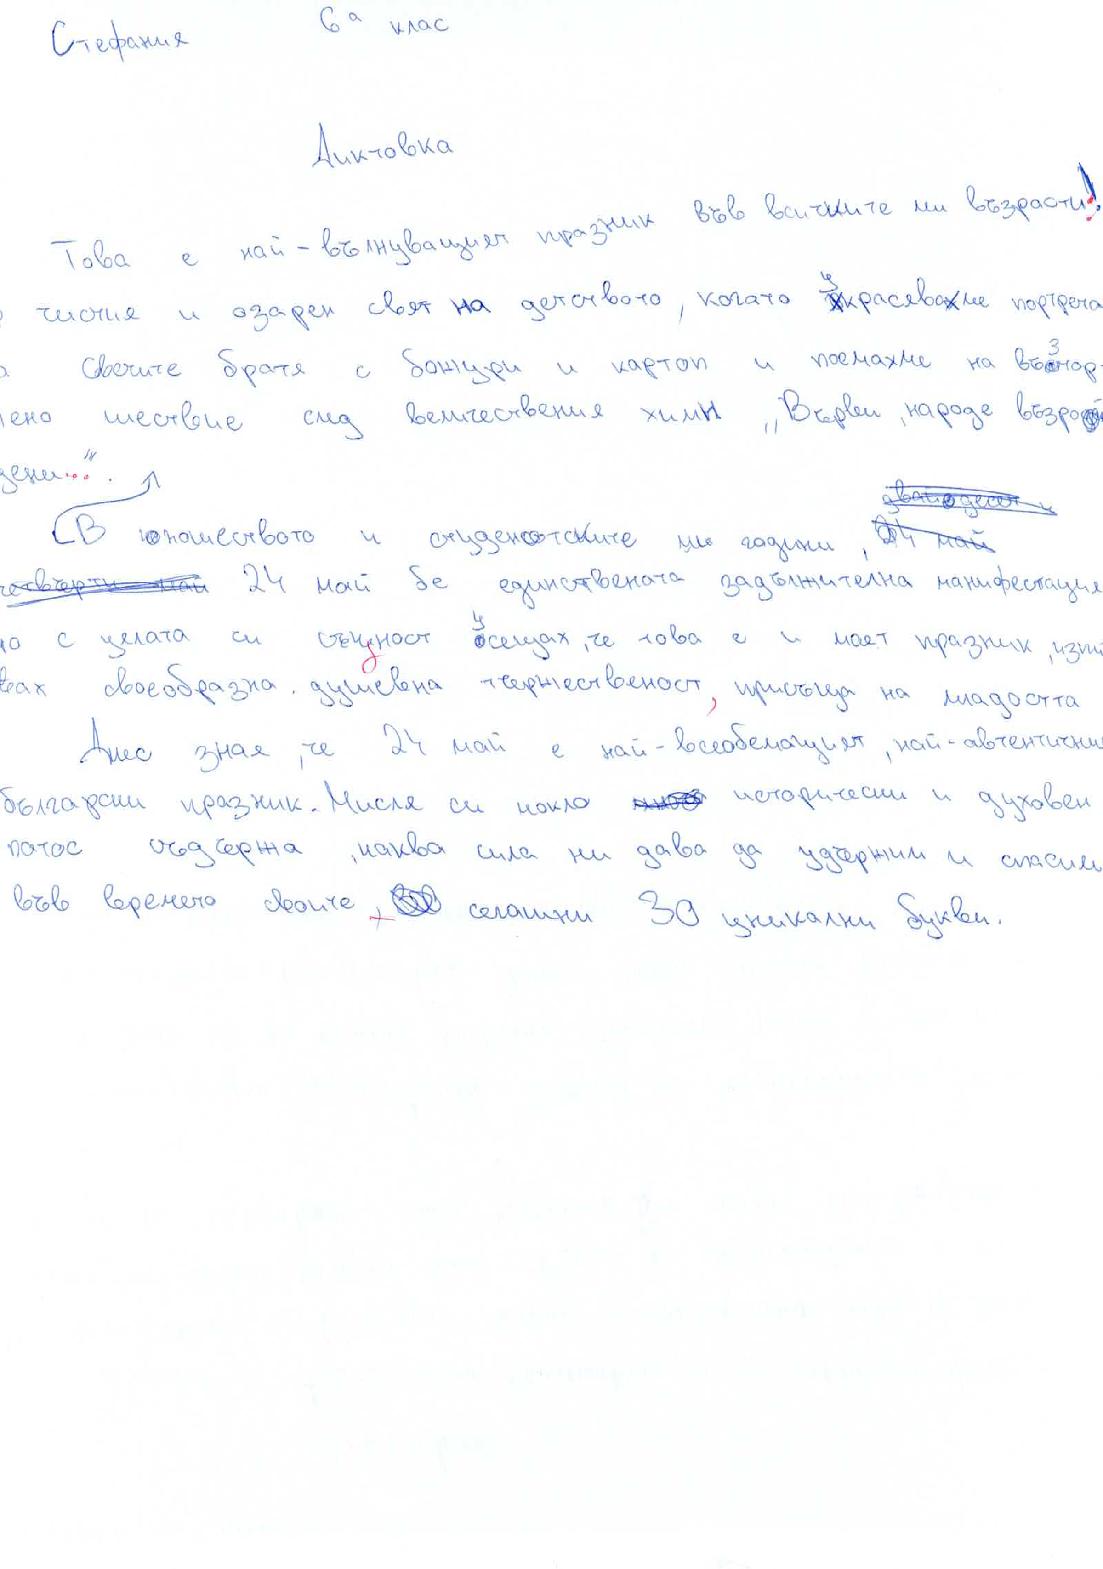 Стефания 6а клас
Диктовка
Това е най-вълнуващият празник във всичките ми възрасти!
чистия и озарен свят на детството, когато украсявахме портрета
Светите братя с божури и картон и поемахме на възтор-
жено шествие след величествения химн „Върви, народе възро
дени...“.
В юношеството и студентските ми години, 24 май
24 май бе единствената задължителна манифестация
с цялата си същност усещах, че това е и моят празник, изпи
вах своеобразна душевна тържественост, присъща на младостта
Днес знам, че 24 май е най-всеобемащият, най-автентични
български празник. Мисля си колко исторически и духовен
патос съдържа, каква сила ни дава да удържим и спасим
във времето своите, сегашни 30 уникални букви.